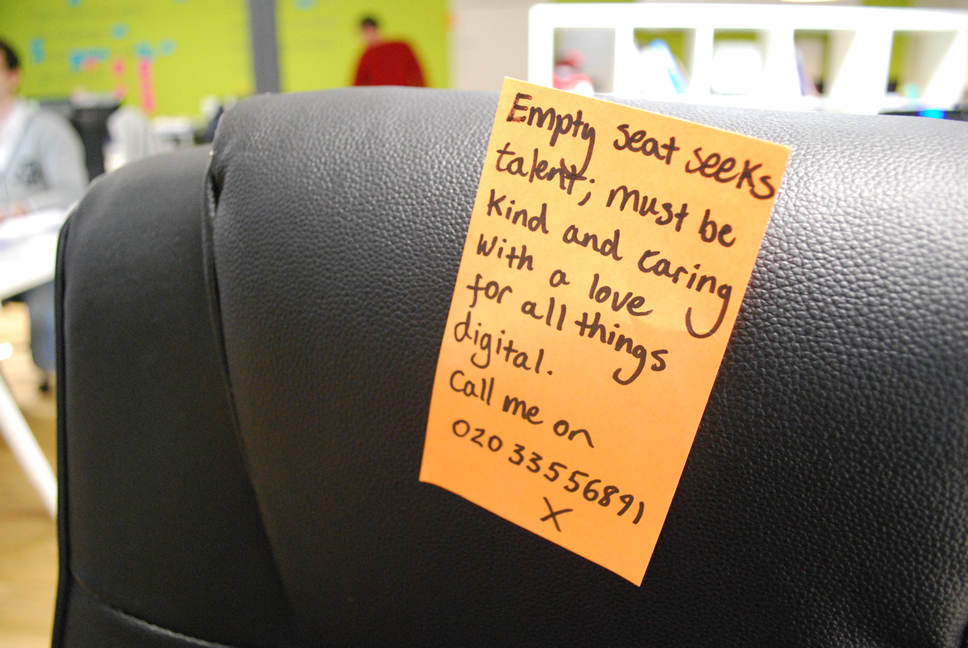 Empty seat seeks
talent; must be
kind and caring
with a love
for all things
digital.
Call me on
020 33556891
X